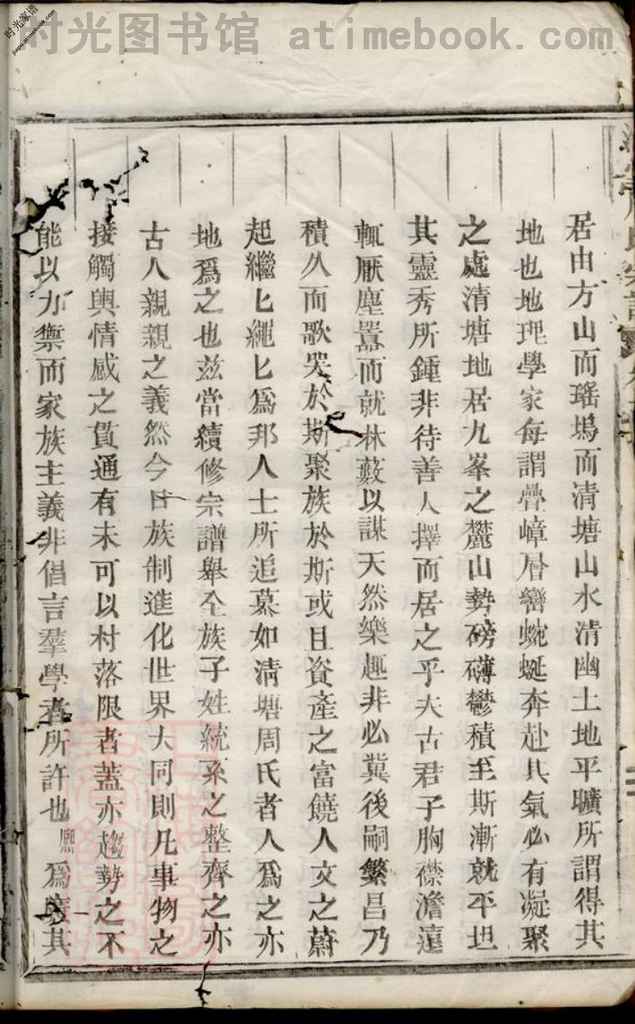 时光图书馆 atimebook.com
居由方山而瑤塢而清塘山水清幽土地平曠所謂得其
地也地理學家每謂疊嶂層巒蜿蜒奔赴其氣必有凝聚
之處清塘地居九峯之麓山勢磅礴鬱積至斯漸就平坦
其靈秀所鍾非待善人擇而居之乎夫古君子胸襟澹遠
輒厭塵囂而就林藪以謀天然樂趣非必冀後嗣繁昌乃
積久而歌哭於斯聚族於斯或且資產之富饒人文之蔚
起繼匕繩匕爲邦人士所追慕如清塘周氏者人爲之亦
地爲之也兹當續修宗譜舉全族子姓統系之整齊之亦
古人親親之義然今日族制進化世界大同則凡事物之
接觸輿情感之貫通有未可以村落限者蓋亦趨勢之不
能以力禦而家族主義非倡言羣學者所許也熙爲其